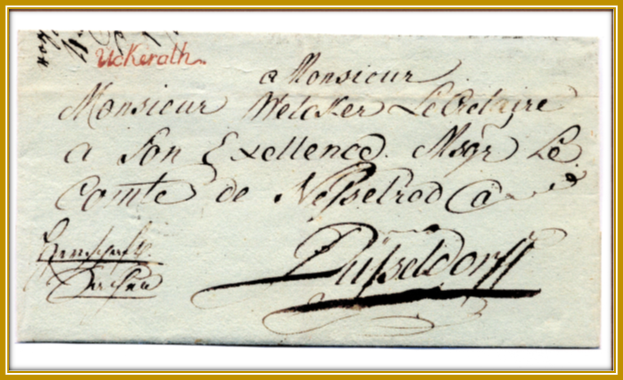 Uckerath
a Monsieur
Monsieur Welcker Secretaire
a Son Exellence Msgr Le
Comte de Nesselrod a
Düsseldorff